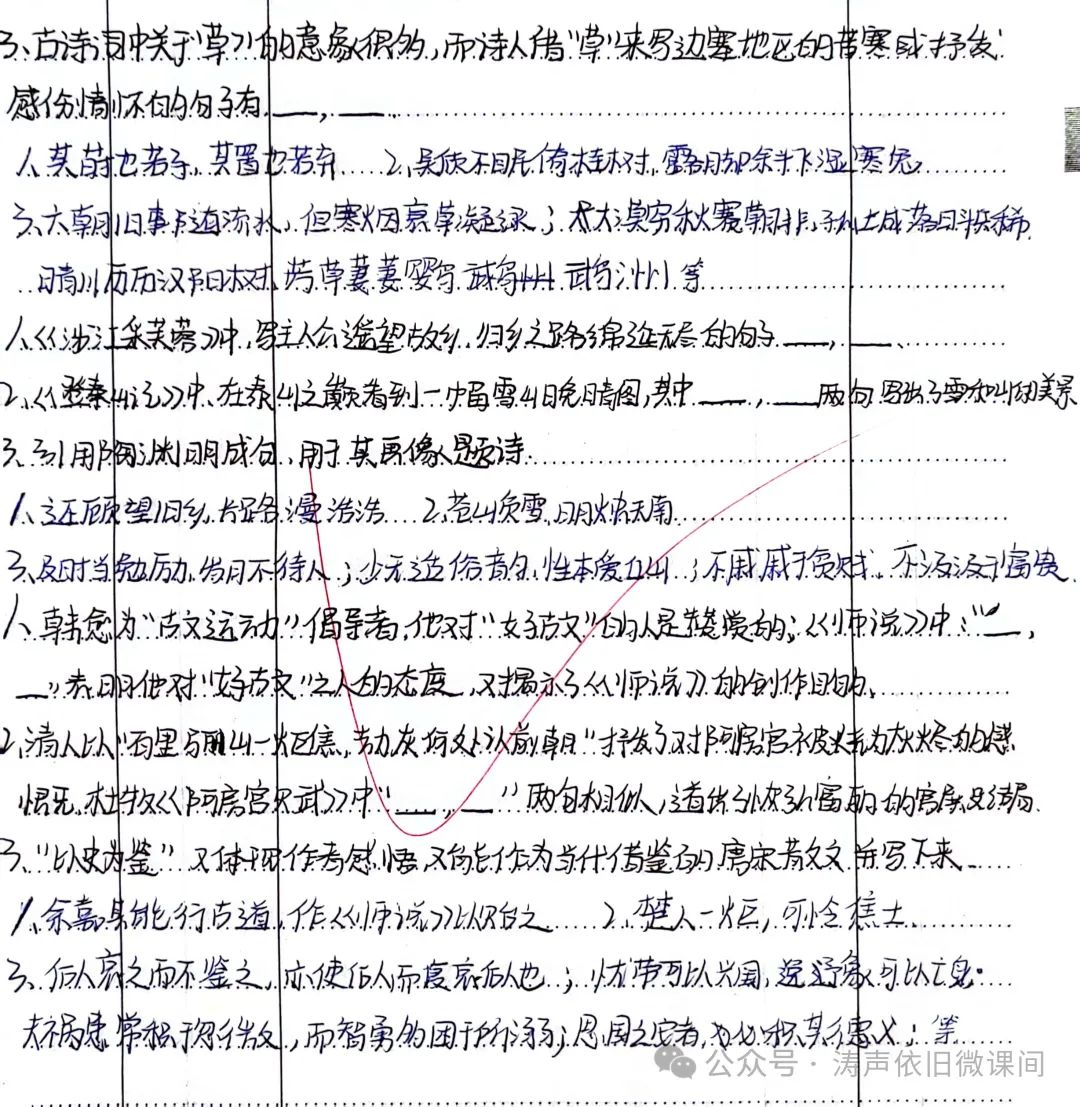 3、古诗词中关于"草"的意象很多,而诗人借"草"来写边塞地区的苦寒或抒发
感伤情怀的句子有___,___。
1、其莳也若子,其置也若弃 2、吴质不眠倚桂树,露脚斜飞湿寒兔
3、六朝旧事随流水,但寒烟衰草凝绿;大漠穷秋塞草腓,孤城落日斗兵稀
晴川历历汉阳树,芳草萋萋鹦鹉洲等
1、《涉江采芙蓉》中,写主人公遥望故乡,归乡之路绵延无尽的句子___,___、
2、《登泰山记》中,在泰山之巅看到一幅雪山晚晴图,其中___,___两句写出了雪和山的美景
3、引用陶渊明成句,用于其画像题诗
1、还顾望旧乡,长路漫浩浩 2、苍山负雪,明烛天南
3、及时当勉励,岁月不待人;少无适俗韵,性本爱丘山;不戚戚于贫贱,不汲汲于富贵
1、韩愈为"古文运动"倡导者,他对"好古文"的人是赞赏的;《师说》中:"___,
___"表明他对"好古文"之人的态度,又揭示了《师说》的创作目的。
2、清人以"百里骊山一炬焦,劫灰何处认前朝"抒发了对阿房宫被烧为灰烬的感
慨,杜牧《阿房宫赋》中"___,___"两句相似,道出了恢弘富丽的宫殿结局
3、"以史为鉴"又体现作者感悟又能作为当代借鉴的唐宋散文并写下来
1、余嘉其能行古道,作《师说》以贻之 2、楚人一炬,可怜焦土
3、后人哀之而不鉴之,亦使后人而复哀后人也;忧劳可以兴国,逸豫可以亡身;
祸患常积于忽微,而智勇多困于所溺;思国之安者,必积其德义;等
公众号·涛声依旧微课间